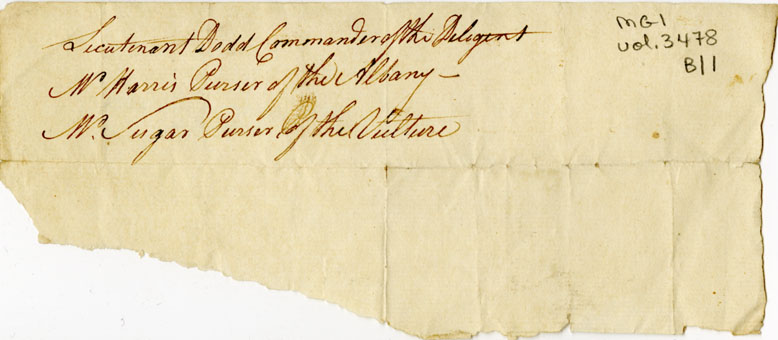 Lieutenant Dodd Commander of the Diligent
Mr. Harris Purser of the Albany —
Mr. Sugar Purser of the Vulture
MG1
vol. 3478
B/1